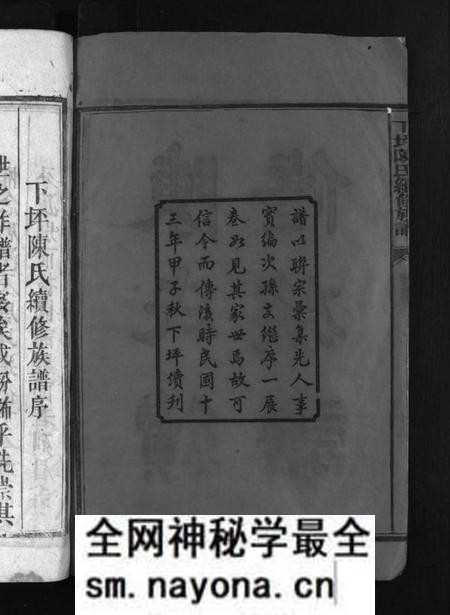 下坪陳氏續修族譜
譜以聯宗彙集先人事
實編次孫支繼序一展
卷如見其家世焉故可
信今而傳後時民國十
三年甲子秋下坪續刋
下坪陳氏續修族譜序
世之作譜者
全网神秘学最全
sm.nayona.cn